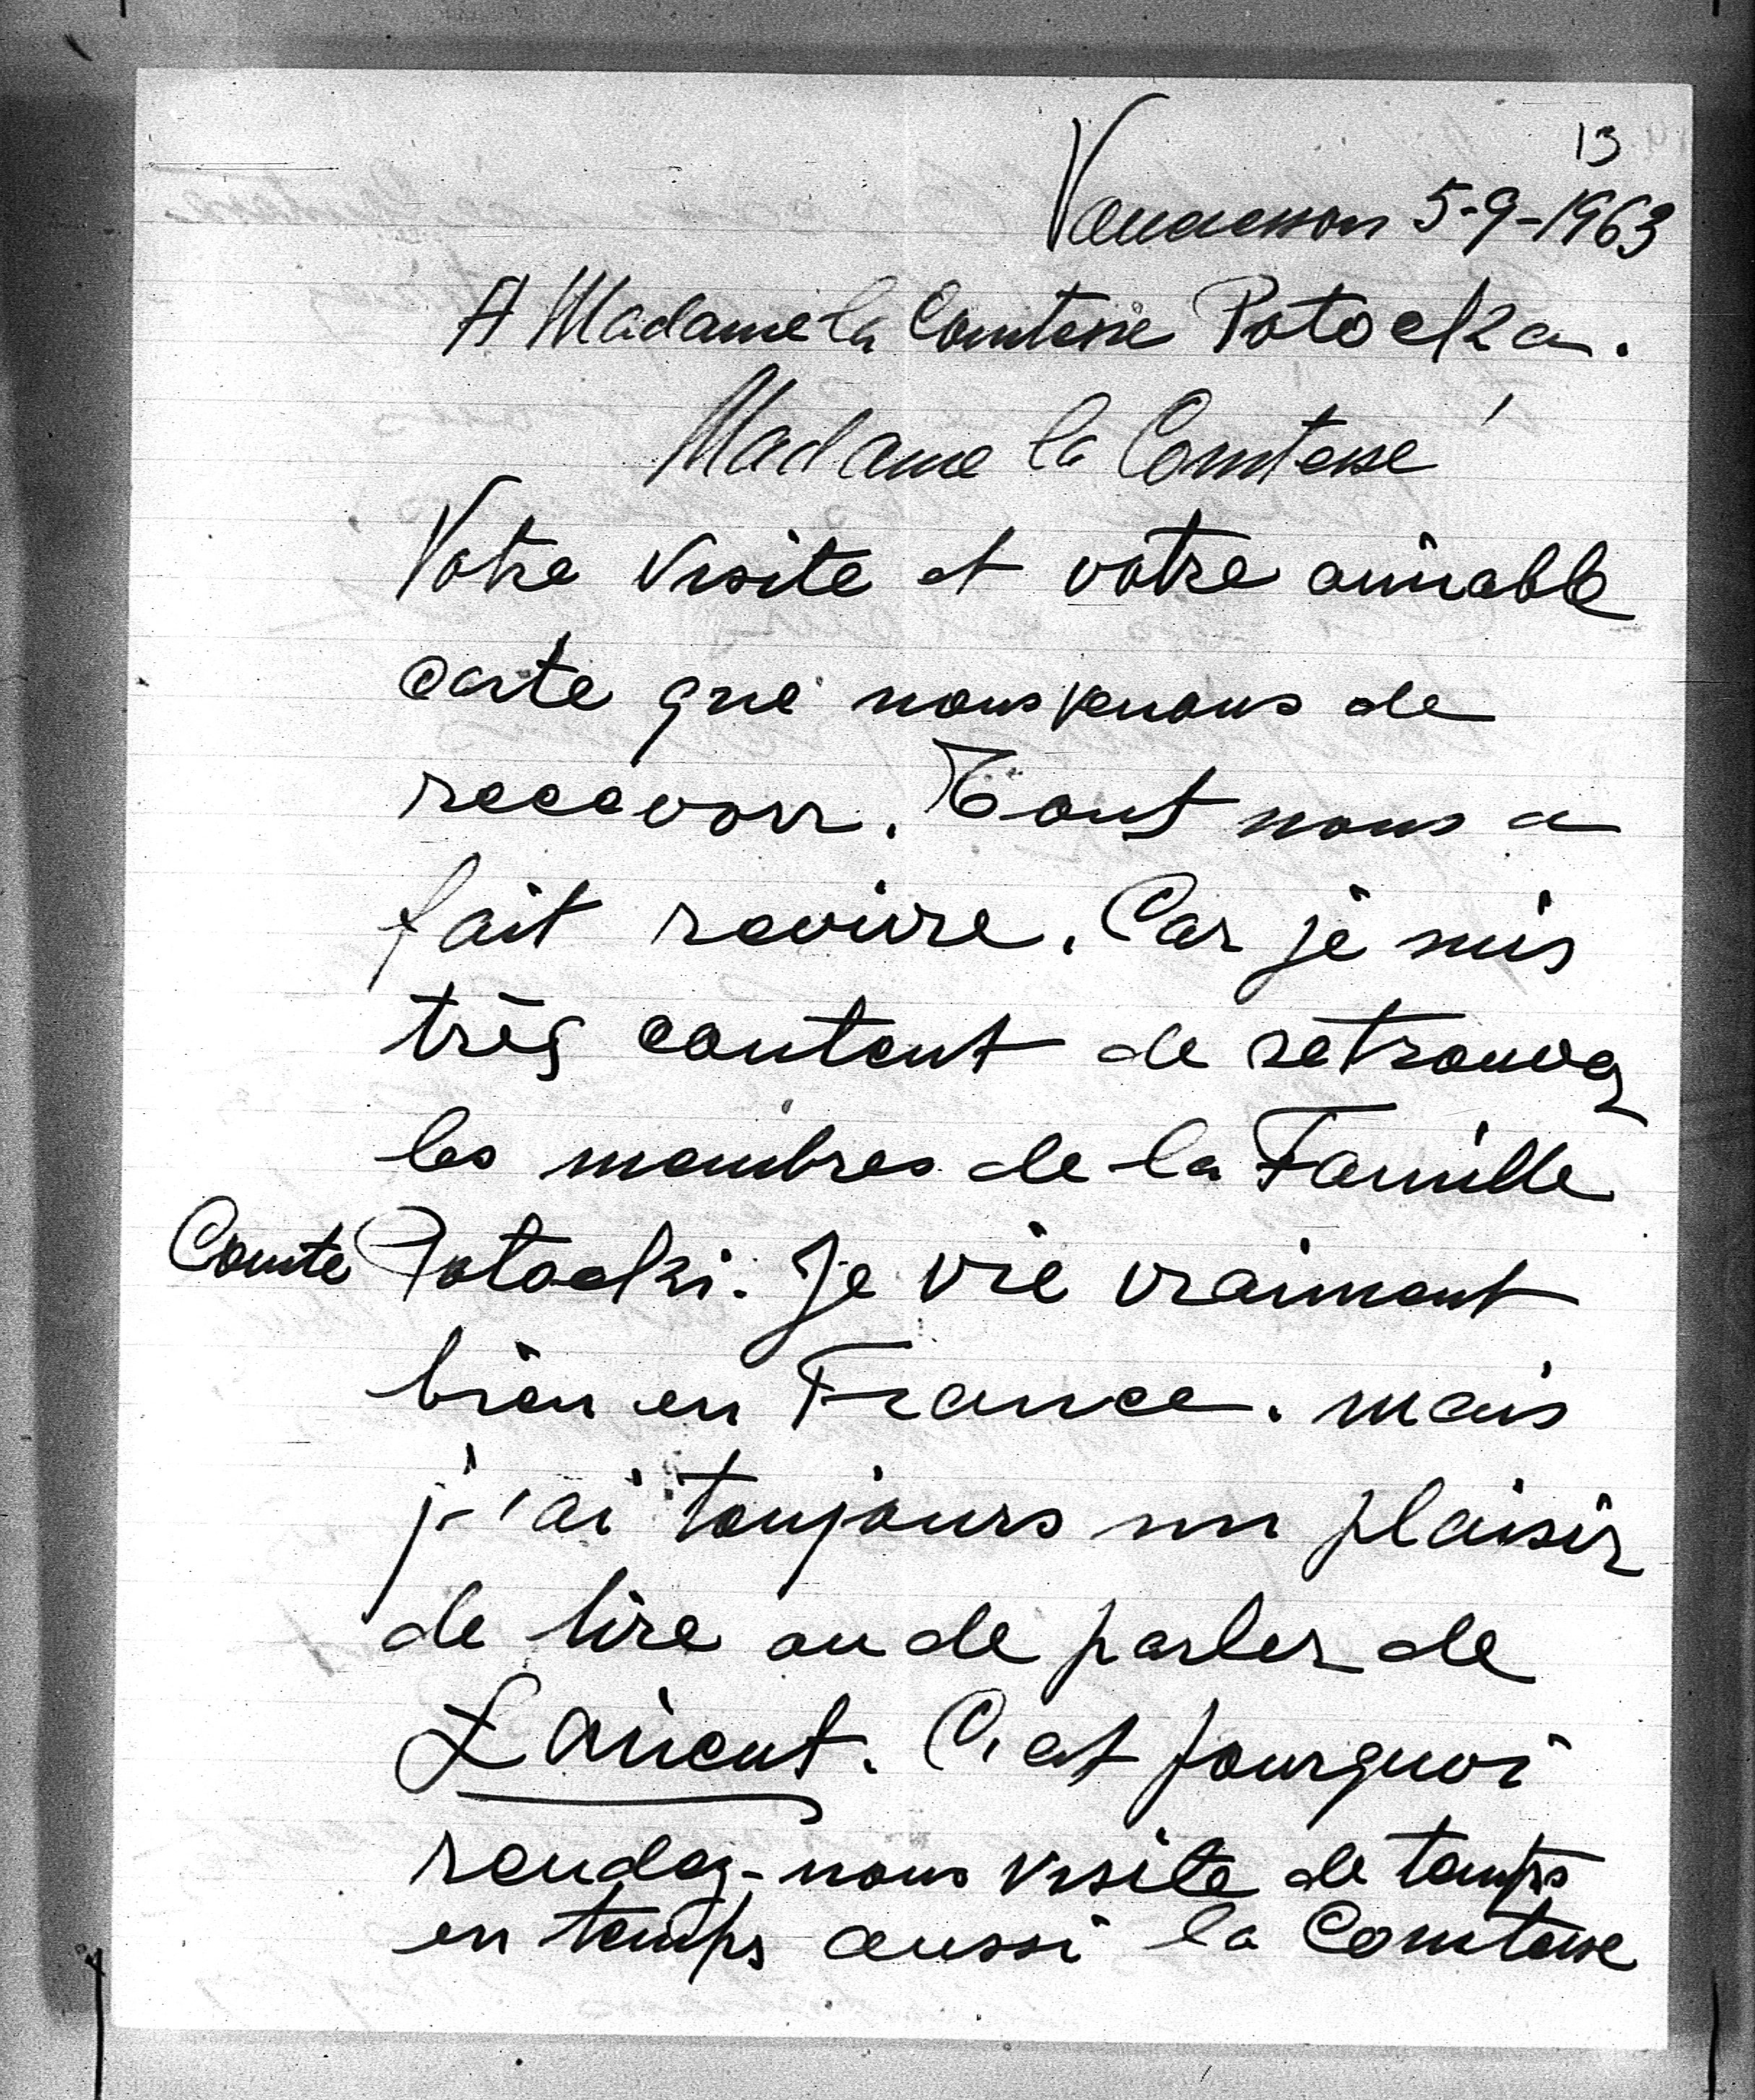 13
5-9-1963
A Madame la Comtesse Potocka.
Madame la Comtesse
Votre visite et votre aimable
carte que nous venons de
recevoir. Tout nous a
fait revivre. Car je suis
très content de retrouver
les membres de la Famille
Comte Potocki. Je vie vraiment
bien en France. mais
j'ai toujours un plaisir
de lire ou de parler de
Łańcut. C'est pourquoi
rendez-nous visite de temps
en temps aussi la Comtesse